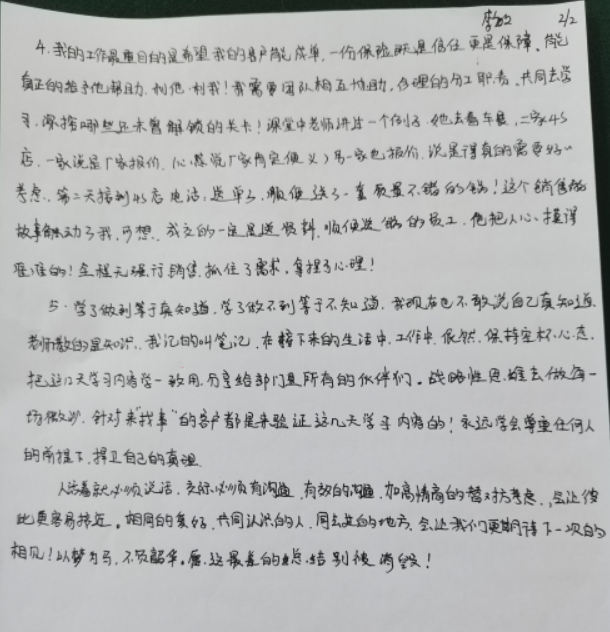 2/2
4. 我的工作最重目的是希望我的客户能成单，一份保险既是信任更是保障。能
真正的给予他帮助，利他利我！我需要团队相互协助，合理的分工职责，共同去学
习，深挖哪些还未曾解锁的关卡！课堂中老师讲过一个例子，她去看车展，二家4S
店，一家说是厂家报价，(心想说厂家肯定便义)另一家也报价，说是得真的需要好心
考虑，第二天接到4S店电话，送单了，顺便送了一套质量不错的锅！这个销售的
故事触动了我，可想，成交的一定是送资料，顺便送锅的员工，他把人心摸得
准准的！全程无强行销售，抓住了需求，拿捏了心理！
5. 学了做到等于真知道，学了做不到等于不知道，我现在也不敢说自己真知道，
老师教的是知识，我记的叫笔记，在接下来的生活中，工作中，依然保持空杯心态，
把这几天学习内容学一致用，分享给部门里所有的伙伴们。战略性思维去做每一
场微沙，针对来“找事”的客户都是来验证这几天学习内容的！永远学会尊重任何人
的前提下，捍卫自己的真理。
人活着就必须说话，交际必须有沟通，有效的沟通，加高情商的替对方考虑，会让彼
此更容易接近。相同的爱好，共同认识的人，同去过的地方，会让我们更期待下一次的
相见！以梦为马，不负韶华。愿这最差的 点 结 别被消毁！